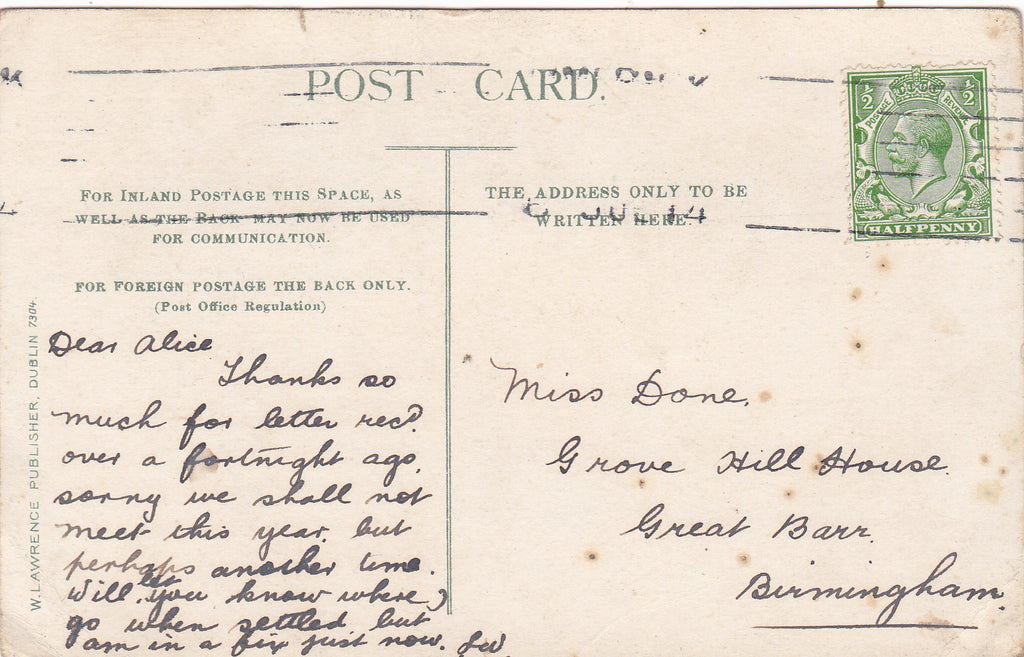 POST CARD.
FOR INLAND POSTAGE THIS SPACE, AS
WELL AS THE BACK MAY NOW BE USED
FOR COMMUNICATION.
FOR FOREIGN POSTAGE THE BACK ONLY.
(Post Office Regulation)
Dear Alice
Thanks so
much for letter recd.
over a fortnight ago,
sorry we shall not
meet this year, but
perhaps another time.
Will let you know where I
go when settled but
am in a fix just now. JW
W. LAWRENCE PUBLISHER, DUBLIN 7304.
THE ADDRESS ONLY TO BE
WRITTEN HERE.
JUL 14
½ ½
POSTAGE REVENUE
HALFPENNY
Miss Done,
Grove Hill House
Great Barr
Birmingham.